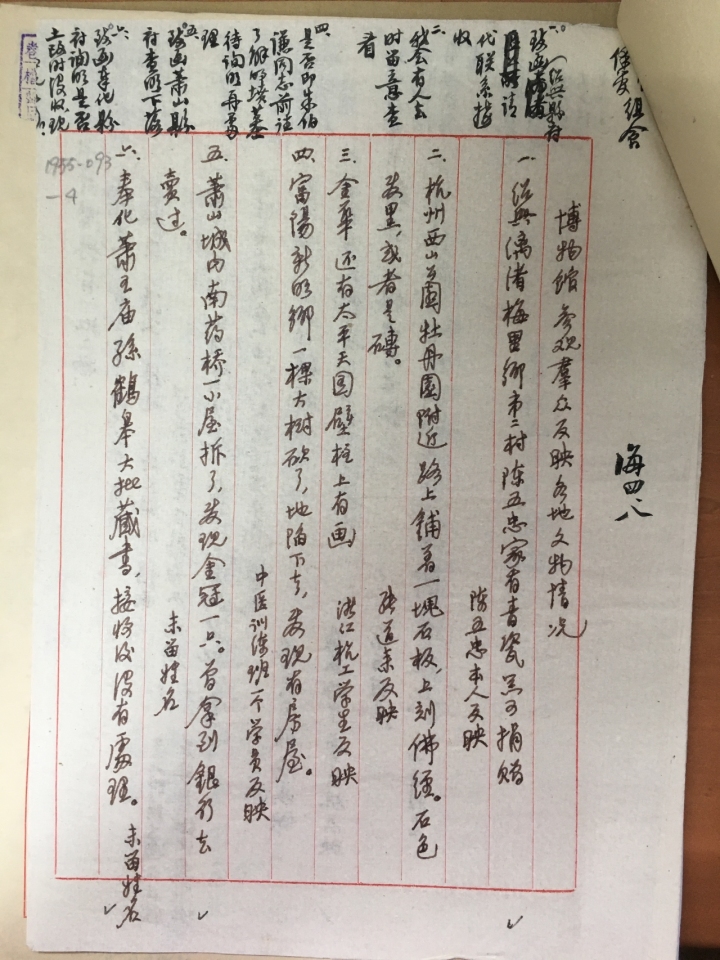 保委组会
博物館参观羣众反映各地文物情况
一、绍興漓渚梅里鄉市二村陈五忠家有青瓷器可捐赠
陈五忠本人反映
二、杭州西山公園牡丹園附近路上鋪着一塊石板，上刻佛经。石色
发黑，或者是磚。
張道荣反映
三、金華还有太平天囯壁柱上有画
浙江杭工学生反映
四、富陽新明鄉一棵大樹砍了，地陷下去，发现有房屋。
中医训练班一个学员反映
五、萧山城内南药桥一小屋拆了，发现金冠一只。曾拿到銀行去
賣过。
未留姓名
六、奉化萧王庙孫鶴皋大批藏書，接收后没有處理。
未留姓名
一、
发函绍兴县府
请
代联系接
收
二、
我会有人去
时留意查
看
四、
是否即朱伯
谦同志前往
了解时坟墓
待询明再處
理
五、
发函萧山县
府查明下落
六、
发函奉化县
府询明是否
土改时没收现
1955-093
-4